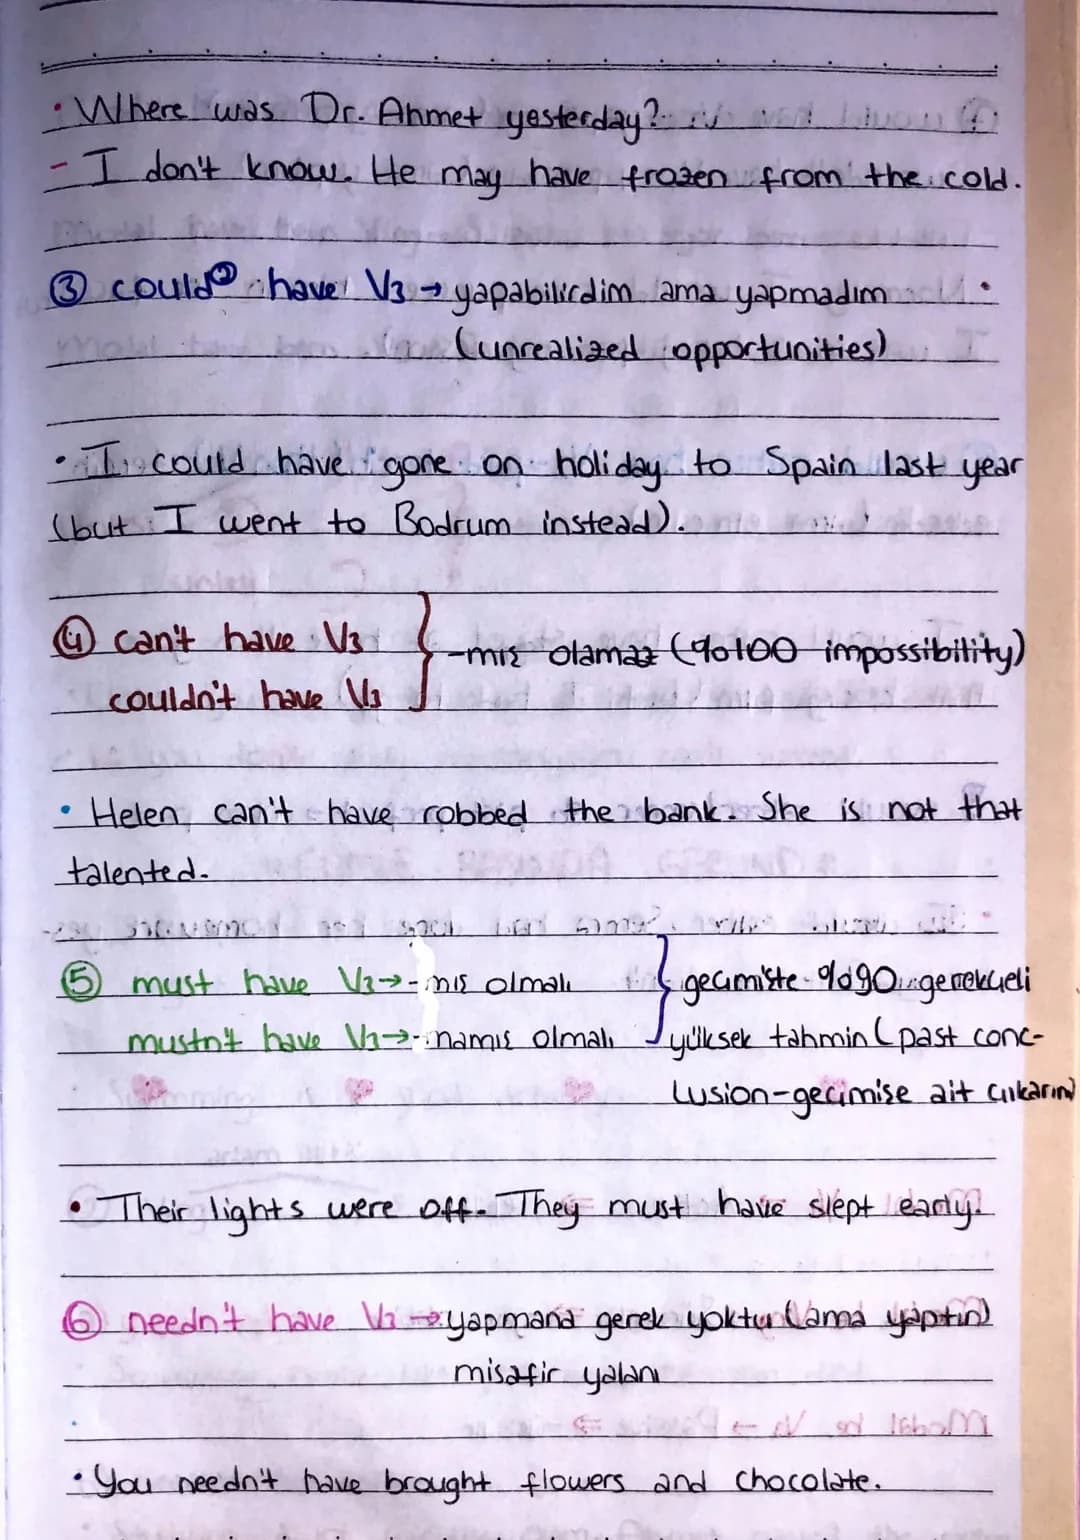 · Where was Dr. Ahmet yesterday?
- I don't know. He may have frozen from the cold.
③ could② have V3 → yapabilirdim ama yapmadım
(unrealized opportunities)
· I could have gone on holiday to Spain last year
(but I went to Bodrum instead).
④ can't have V3
couldn't have V3 } -mış olamaz (%100 impossibility)
· Helen can't have robbed the bank. She is not that
talented.
⑤ must have V3 → -mış olmalı } geçmişte %90 gerekçeli
mustn't have V3 → -mamış olmalı yüksek tahmin (past conc-
lusion-geçmişe ait çıkarım)
· Their lights were off. They must have slept early.
⑥ needn't have V3 → yapmana gerek yoktu (ama yaptın)
misafir yalanı
· You needn't have brought flowers and chocolate.